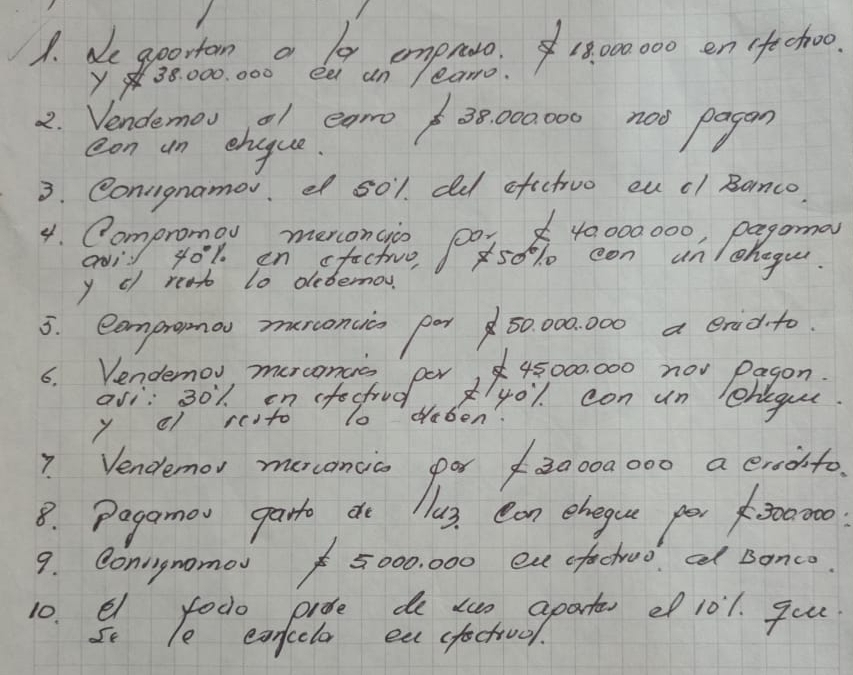 1. Se aportan a la empresa. $ 18.000.000 en efectivo.
y $ 38.000.000 en un carro.
2. Vendemos el carro $ 38.000.000 nos pagan
con un cheque.
3. Consignamos. el 50% del efectivo en el Banco.
4. Compramos mercancías por $ 40.000.000, pagamos
así: 40% en efectivo, $ 50% con un cheque.
y el resto lo debemos.
5. Compramos mercancías por $ 50.000.000 a crédito.
6. Vendemos mercancías por $ 45.000.000 nos pagan.
así: 30% en efectivo $ 40% con un cheque.
y el resto lo deben.
7. Vendemos mercancías por $ 30.000.000 a crédito.
8. Pagamos gasto de luz con cheque por $ 300.000.
9. Consignamos $ 5.000.000 en efectivo al Banco.
10. El socio pide de sus aportes el 10%. que.
se le cancela en efectivo.